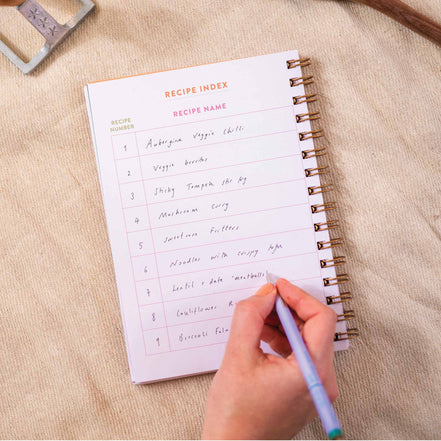 RECIPE INDEX
RECIPE NUMBER
RECIPE NAME
1 Aubergine Veggie Chilli
2 Veggie burritos
3 Sticky Tempeh stir fry
4 Mushroom Curry
5 Sweetcorn Fritters
6 Noodles with crispy tofu
7 Lentil + date 'meatballs'
8 Cauliflower
9 Broccoli